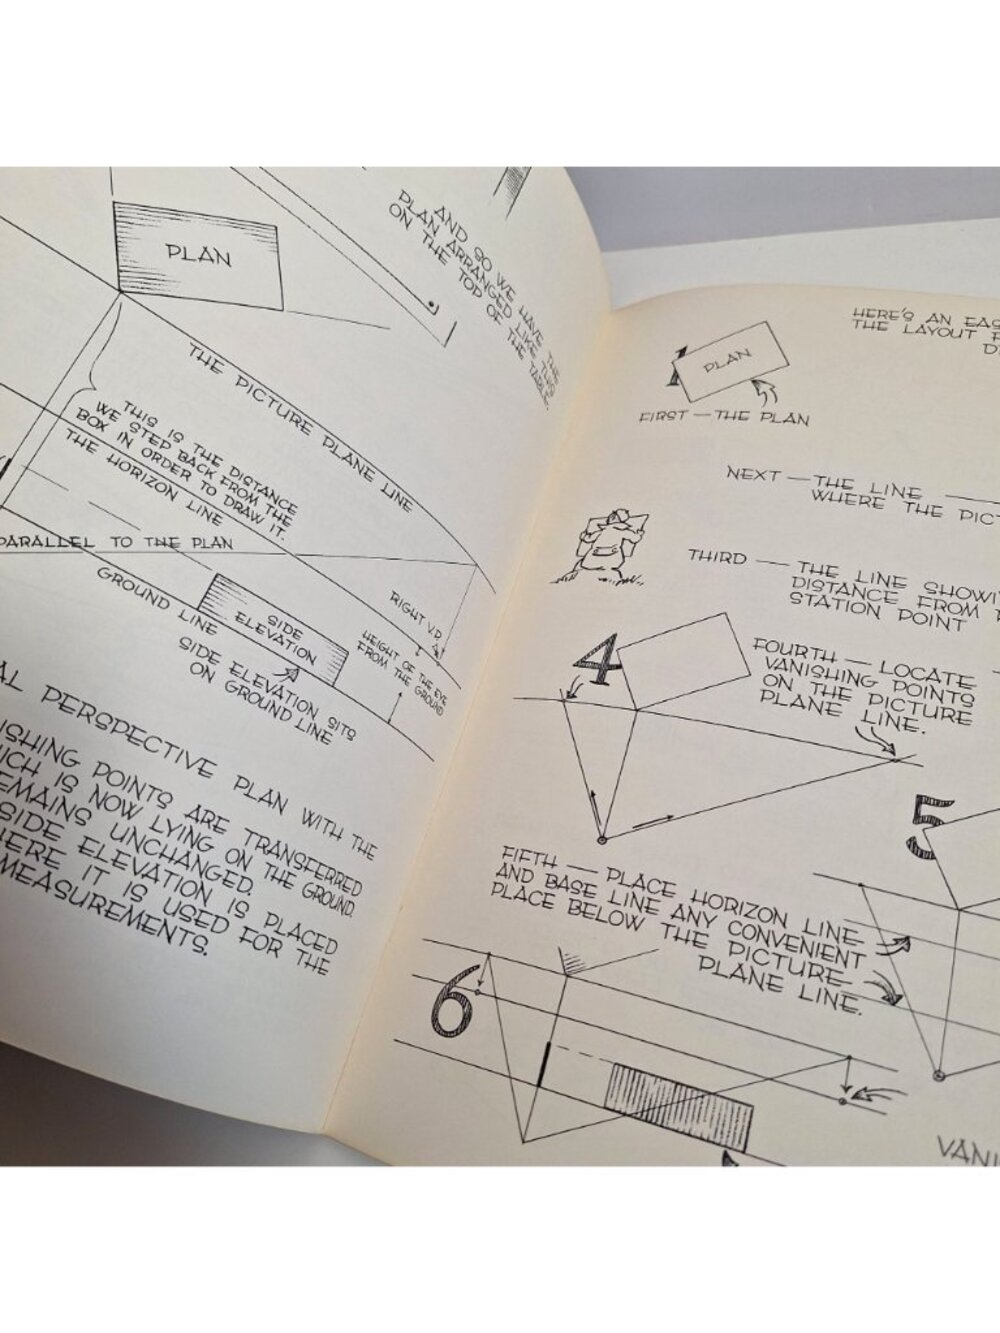 AND SO WE HAVE THE
PLAN ARRANGED LIKE THIS
ON THE TOP OF THE TABLE.
PLAN
THE PICTURE PLANE LINE
THIS IS THE DISTANCE
WE STEP BACK FROM THE
BOX IN ORDER TO DRAW IT.
THE HORIZON LINE
PARALLEL TO THE PLAN
RIGHT V.P.
GROUND LINE
SIDE
ELEVATION
HEIGHT OF THE EYE
FROM THE GROUND
SIDE ELEVATION SITS
ON GROUND LINE
AL PERSPECTIVE PLAN WITH THE
ISHING POINTS ARE TRANSFERRED
ICH IS NOW LYING ON THE GROUND.
EMAINS UNCHANGED.
SIDE ELEVATION IS PLACED
ERE IT IS USED FOR THE
MEASUREMENTS.
HERE'S AN EAS
THE LAYOUT F
D
1
PLAN
FIRST — THE PLAN
NEXT — THE LINE
WHERE THE PICT
THIRD — THE LINE SHOWI
DISTANCE FROM
STATION POINT
4
FOURTH — LOCATE
VANISHING POINTS
ON THE PICTURE
PLANE LINE.
5
FIFTH — PLACE HORIZON LINE
AND BASE LINE ANY CONVENIENT
PLACE BELOW THE PICTURE
PLANE LINE.
6
VANI